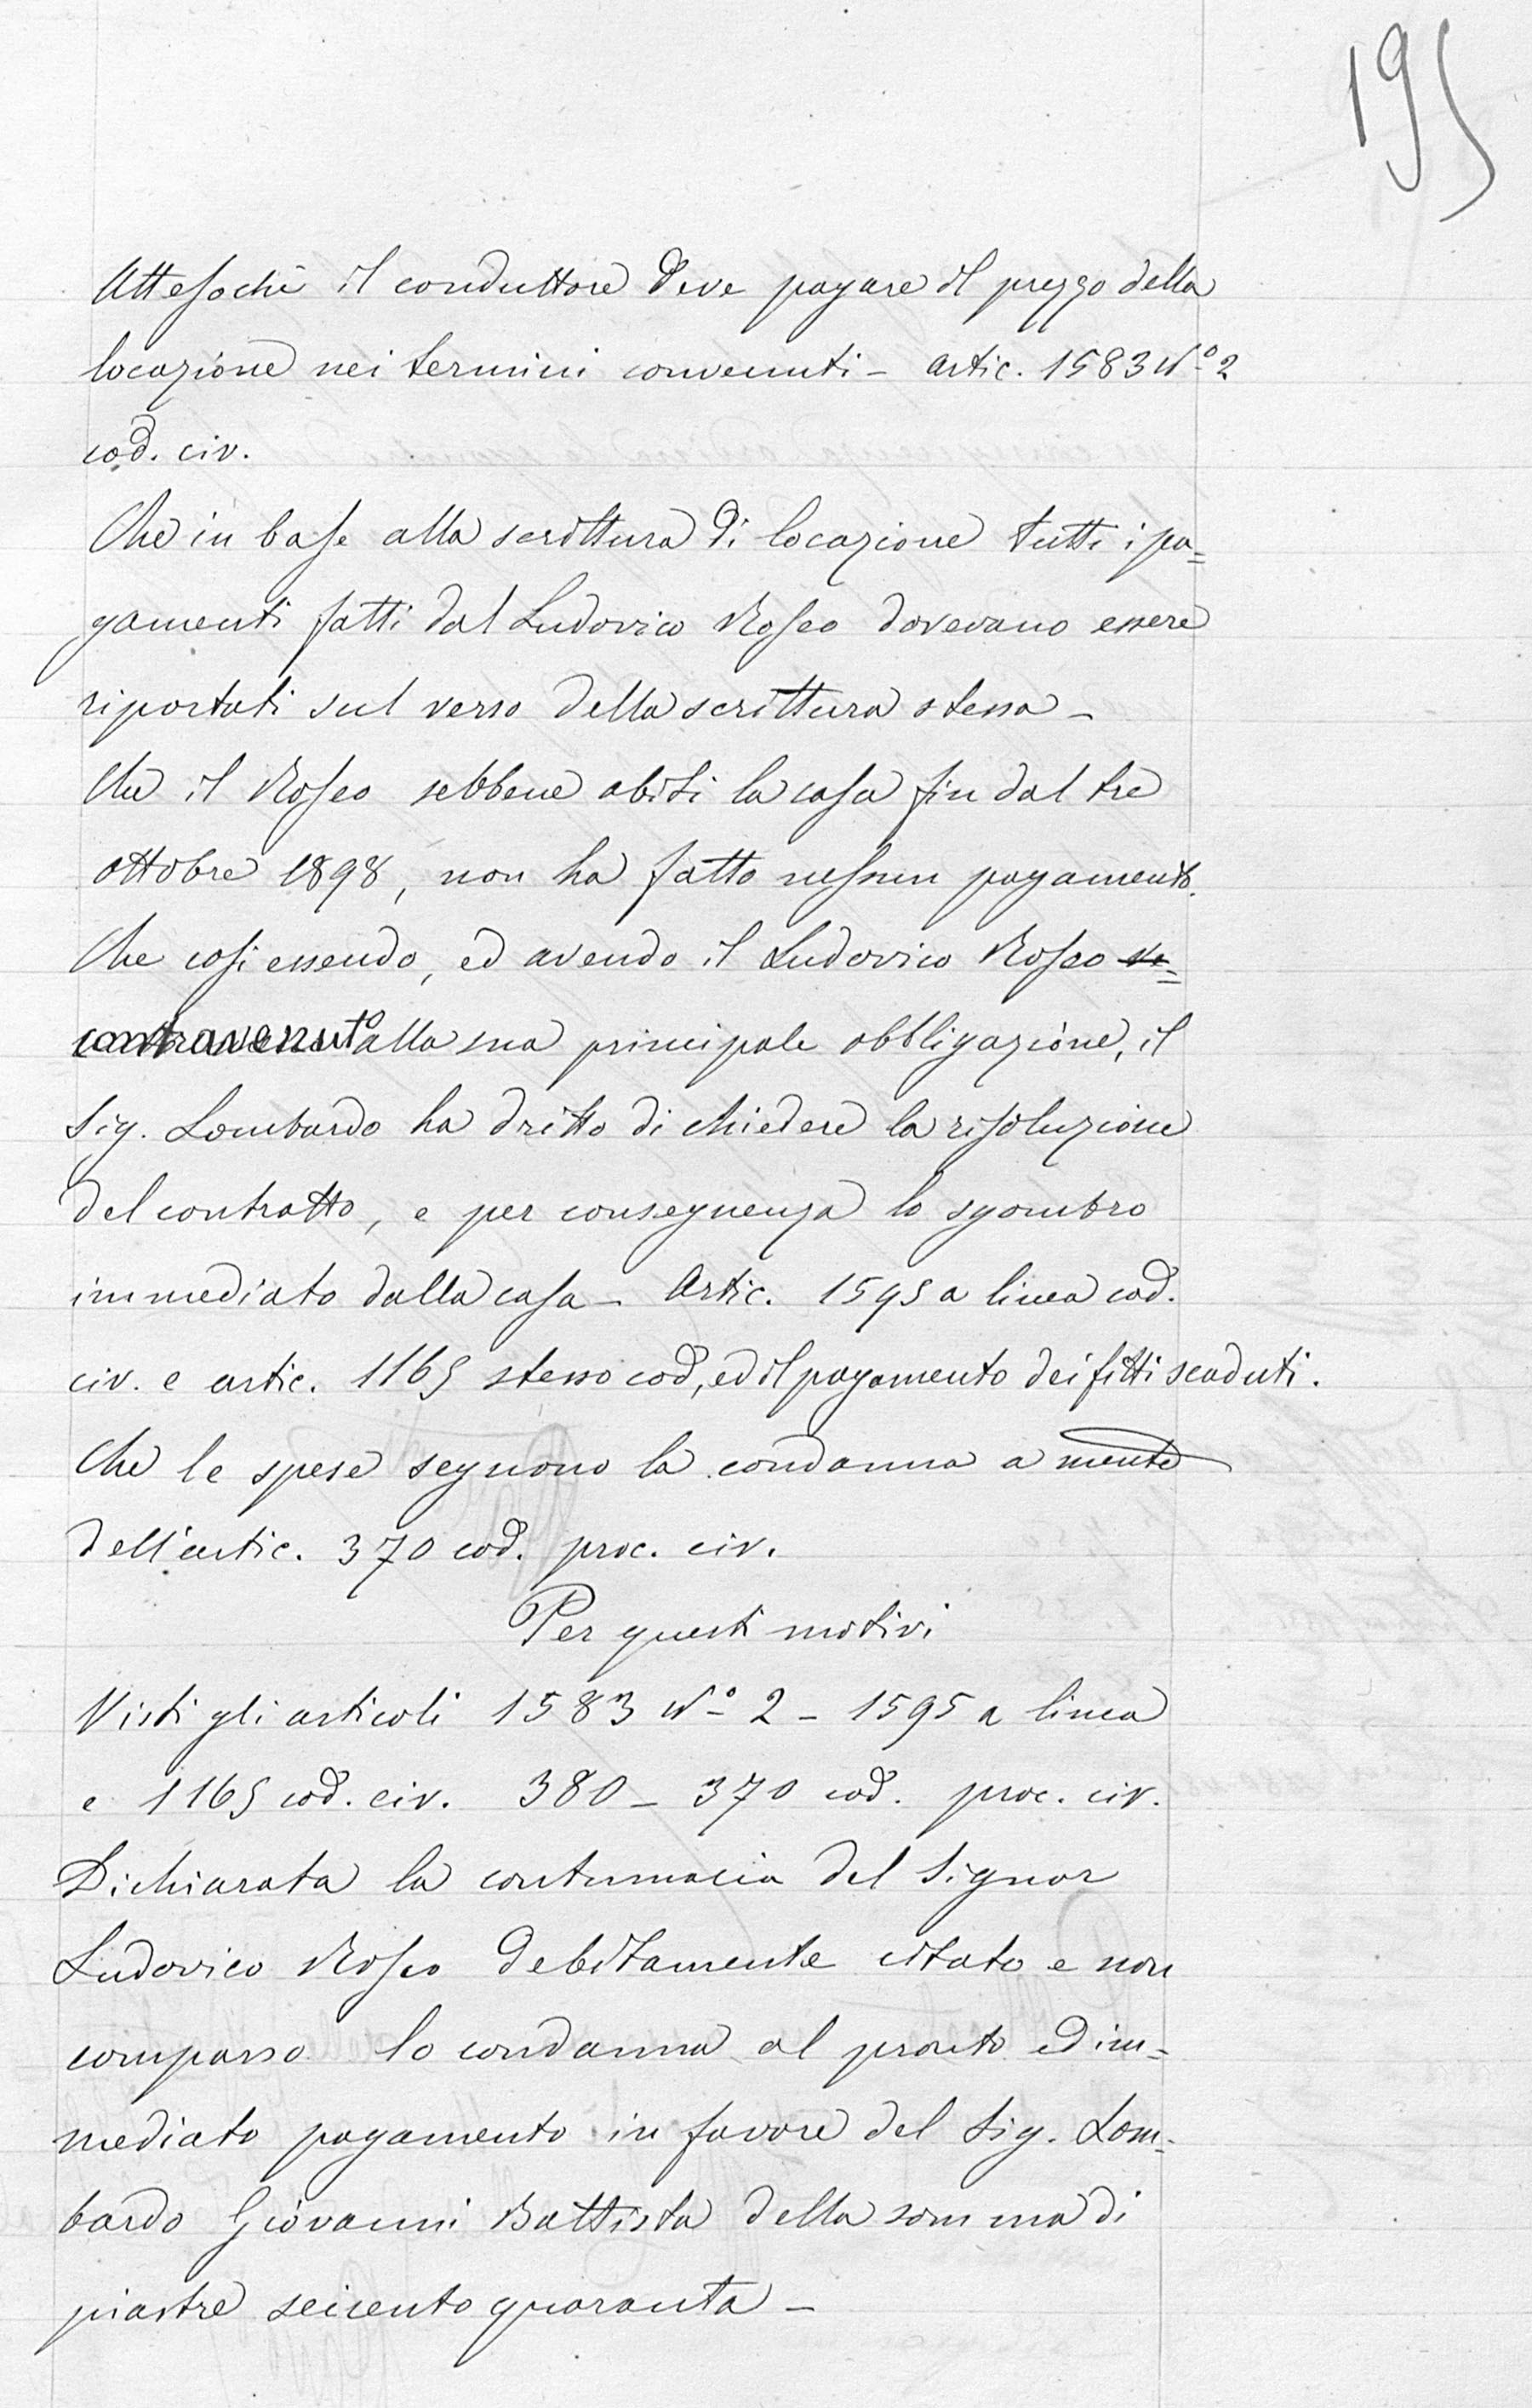 195
Attesochè il conduttore deve pagare il prezzo della
locazione nei termini convenuti - artic. 1583 Nº 2
cod. civ.
Che in base alla scrittura di locazione tutti i pa=
gamenti fatti dal Ludovico Roseo dovevano essere
riportati sul verso della scrittura stessa -
Che il Roseo sebbene abiti la casa fin dal tre
ottobre 1898, non ha fatto nessun pagamento.
Che così essendo, ed avendo il Ludovico Roseo
contravenuto alla sua principale obbligazione, il
Sig. Lombardo ha dritto di chiedere la risoluzione
del contratto, e per conseguenza lo sgombro
immediato dalla casa - Artic. 1595 a linea cod.
civ. e artic. 1165 stesso cod, ed il pagamento dei fitti scaduti.
Che le spese seguono la condanna a mente
dell'artic. 370 cod. proc. civ.
Per questi motivi
Visti gli articoli 1583 Nº 2 - 1595 a linea
e 1165 cod. civ. 380 - 370 cod. proc. civ.
Dichiarata la contumacia del Signor
Ludovico Roseo debitamente citato e non
comparso lo condanna al pronto ed im=
mediato pagamento in favore del Sig. Lom=
bardo Giovanni Battista della somma di
piastre seicento quaranta -